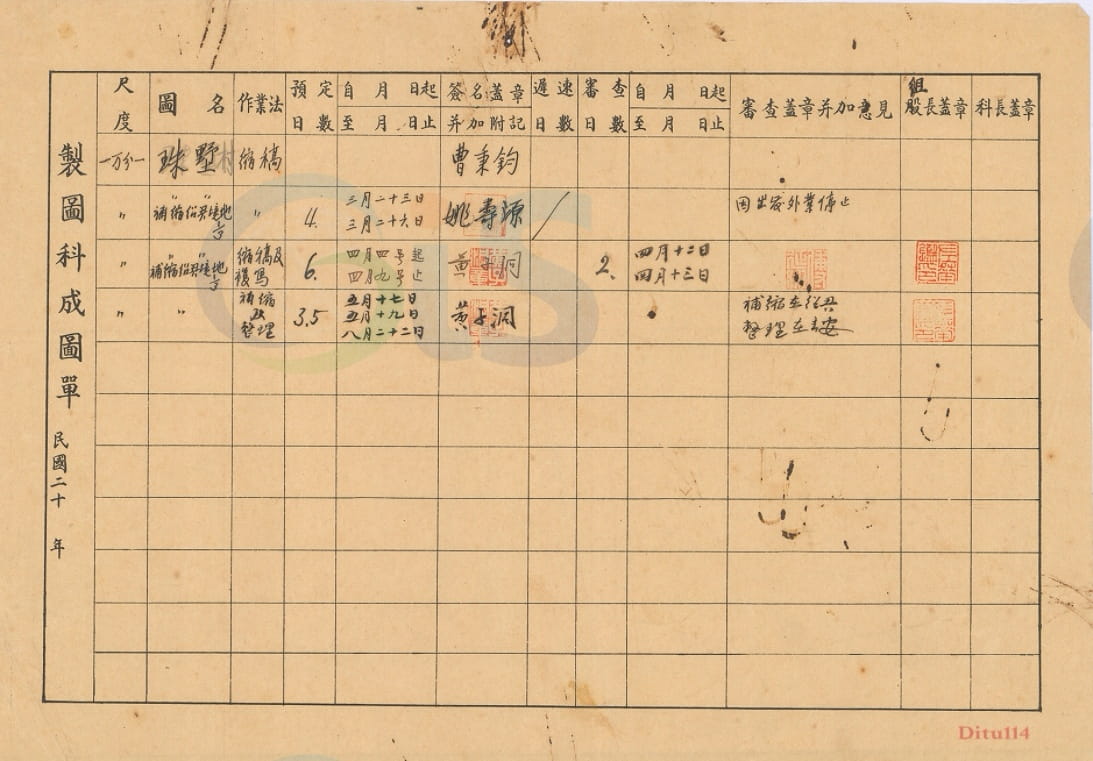 製圖科成圖單 民國二十 年
尺度 圖名 作業法 預定日數 自 月 日起 至 月 日止 簽名蓋章并加附記 遲速日數 審查日數 自 月 日起 至 月 日止 審查蓋章并加意見 組股長蓋章 科長蓋章
一万分一 珠墅村 縮稿 曹秉鈞
〃 〃 〃 補縮 〃 4. 三月二十三日 三月二十六日 姚壽 因出發外業停止
〃 〃 〃 補縮 縮稿及複寫 6. 四月四号起 四月九号止 黄子洞 2. 四月十二日 四月十三日
〃 〃 補縮及整理 3.5 五月十七日 五月十九日 八月二十二日 黄子洞 補縮在 整理在
Ditu114
GIS